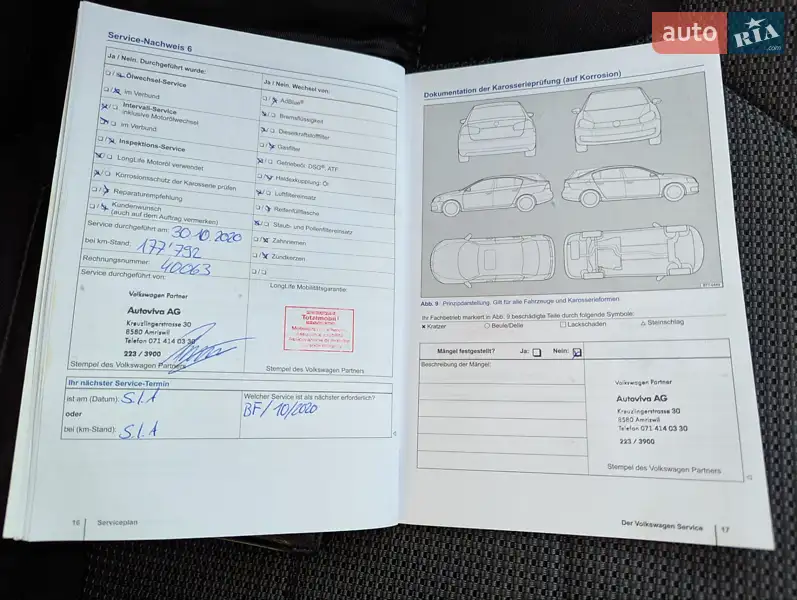 auto RIA
.com
Service-Nachweis 6
Ja / Nein. Durchgeführt wurde:
Ölwechsel-Service
im Verbund
Intervall-Service
inklusive Motorölwechsel
im Verbund
Inspektions-Service
LongLife Motoröl verwendet
Korrosionsschutz der Karosserie prüfen
Reparaturempfehlung
Kundenwunsch
(auch auf dem Auftrag vermerken)
Service durchgeführt am: 30.10.2020
bei km-Stand: 177'792
Rechnungsnummer: 40063
Service durchgeführt von:
Volkswagen Partner
Autoviva AG
Kreuzlingerstrasse 30
8580 Amriswil
Telefon 071 414 03 30
223 / 3900
Stempel des Volkswagen Partners
Ja / Nein. Wechsel von:
AdBlue®
Bremsflüssigkeit
Dieselkraftstofffilter
Gasfilter
Getriebeöl: DSG®, ATF
Haldexkupplung: Öl
Luftfiltereinsatz
Reifenfüllflasche
Staub- und Pollenfiltereinsatz
Zahnriemen
Zündkerzen
LongLife Mobilitätsgarantie:
Totalmobil!
Stempel des Volkswagen Partners
Ihr nächster Service-Termin
ist am (Datum): S.I.A
oder
bei (km-Stand): S.I.A
Welcher Service ist als nächster erforderlich?
BF/10/2020
16 Serviceplan
Dokumentation der Karosserieprüfung (auf Korrosion)
Abb. 9 Prinzipdarstellung. Gilt für alle Fahrzeuge und Karosserieformen
Ihr Fachbetrieb markiert in Abb. 9 beschädigte Teile durch folgende Symbole:
× Kratzer ○ Beule/Delle □ Lackschaden △ Steinschlag
Mängel festgestellt? Ja: Nein:
Beschreibung der Mängel:
Volkswagen Partner
Autoviva AG
Kreuzlingerstrasse 30
8580 Amriswil
Telefon 071 414 03 30
223 / 3900
Stempel des Volkswagen Partners
Der Volkswagen Service 17